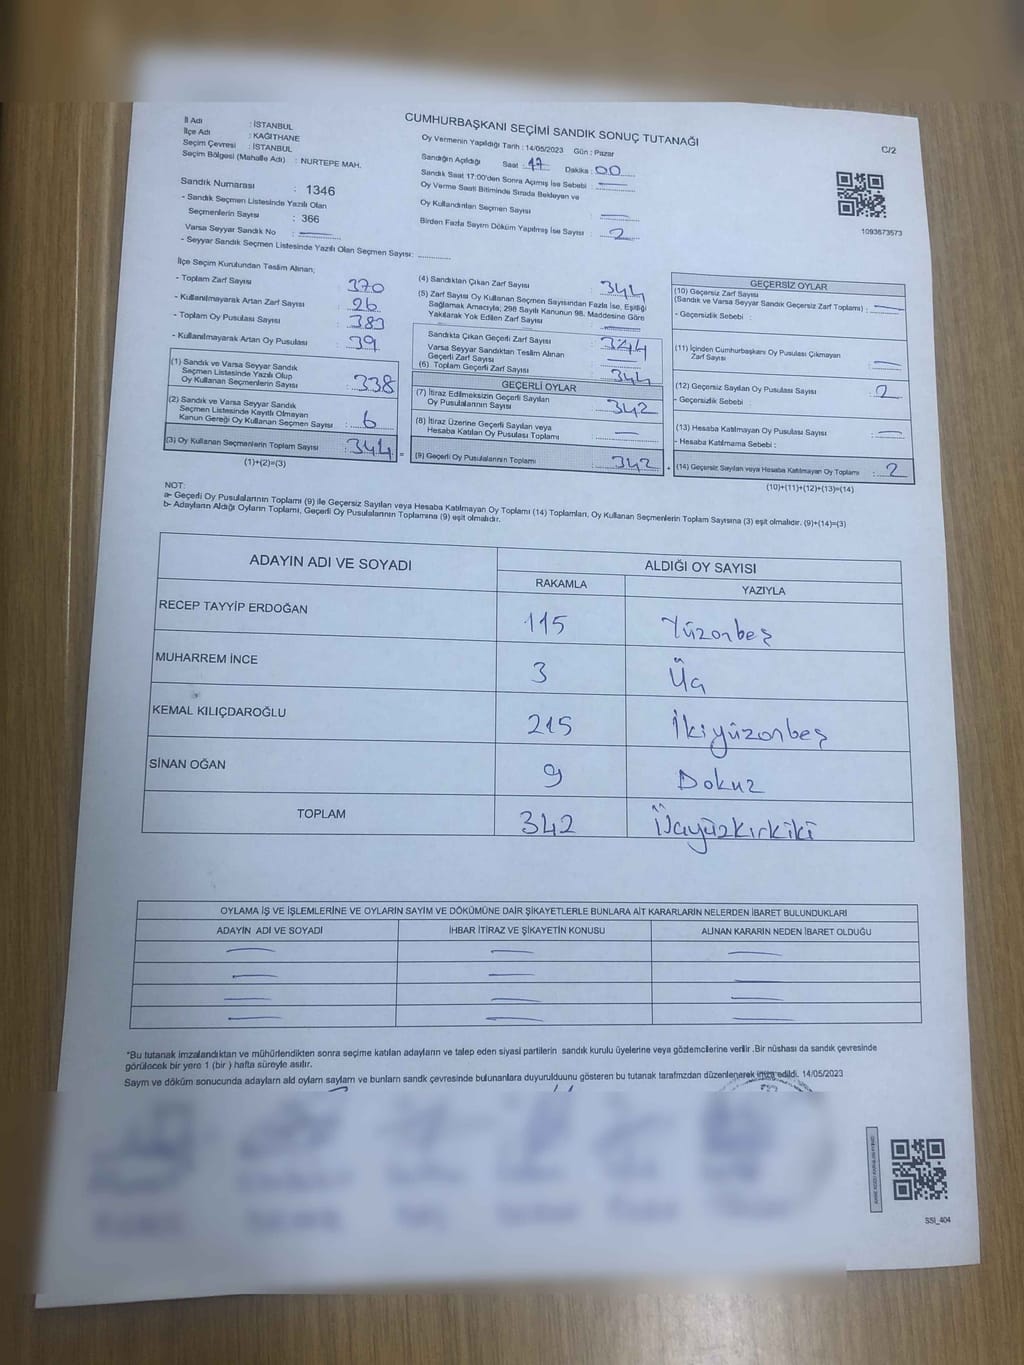 CUMHURBAŞKANI SEÇİMİ SANDIK SONUÇ TUTANAĞI
C/2
İl Adı : İSTANBUL
İlçe Adı : KAĞITHANE
Seçim Çevresi : İSTANBUL
Seçim Bölgesi (Mahalle Adı) : NURTEPE MAH.
Sandık Numarası : 1346
- Sandık Seçmen Listesinde Yazılı Olan
Seçmenlerin Sayısı : 366
Varsa Seyyar Sandık No :
- Seyyar Sandık Seçmen Listesinde Yazılı Olan Seçmen Sayısı:
Oy Vermenin Yapıldığı Tarih : 14/05/2023 Gün : Pazar
Sandığın Açıldığı Saat : 17 Dakika : 00
Sandık Saat 17:00'den Sonra Açımış İse Sebebi :
Oy Verme Saati Bitiminde Sırada Bekleyen ve
Oy Kullandırılan Seçmen Sayısı :
Birden Fazla Sayım Döküm Yapılmış İse Sayısı : 2
1093673573
İlçe Seçim Kurulundan Teslim Alınan;
- Toplam Zarf Sayısı : 370
- Kullanılmayarak Artan Zarf Sayısı : 26
- Toplam Oy Pusulası Sayısı : 383
- Kullanılmayarak Artan Oy Pusulası : 39
(1) Sandık ve Varsa Seyyar Sandık
Seçmen Listesinde Yazılı Olup
Oy Kullanan Seçmenlerin Sayısı : 338
(2) Sandık ve Varsa Seyyar Sandık
Seçmen Listesinde Kayıtlı Olmayan
Kanun Gereği Oy Kullanan Seçmen Sayısı : 6
(3) Oy Kullanan Seçmenlerin Toplam Sayısı : 344
(1)+(2)=(3)
(4) Sandıktan Çıkan Zarf Sayısı : 344
(5) Zarf Sayısı Oy Kullanan Seçmen Sayısından Fazla İse, Eşitliği
Sağlamak Amacıyla; 298 Sayılı Kanunun 98. Maddesine Göre
Yakılarak Yok Edilen Zarf Sayısı :
Sandıkta Çıkan Geçerli Zarf Sayısı : 344
Varsa Seyyar Sandıktan Teslim Alınan
Geçerli Zarf Sayısı :
(6) Toplam Geçerli Zarf Sayısı : 344
GEÇERLİ OYLAR
(7) İtiraz Edilmeksizin Geçerli Sayılan
Oy Pusulalarının Sayısı : 342
(8) İtiraz Üzerine Geçerli Sayılan veya
Hesaba Katılan Oy Pusulası Toplamı :
(9) Geçerli Oy Pusulalarının Toplamı : 342
GEÇERSİZ OYLAR
(10) Geçersiz Zarf Sayısı
(Sandık ve Varsa Seyyar Sandık Geçersiz Zarf Toplamı) :
- Geçersizlik Sebebi :
(11) İçinden Cumhurbaşkanı Oy Pusulası Çıkmayan
Zarf Sayısı :
(12) Geçersiz Sayılan Oy Pusulası Sayısı : 2
- Geçersizlik Sebebi :
(13) Hesaba Katılmayan Oy Pusulası Sayısı :
- Hesaba Katılmama Sebebi :
(14) Geçersiz Sayılan veya Hesaba Katılmayan Oy Toplamı : 2
(10)+(11)+(12)+(13)=(14)
NOT:
a- Geçerli Oy Pusulalarının Toplamı (9) ile Geçersiz Sayılan veya Hesaba Katılmayan Oy Toplamı (14) Toplamları, Oy Kullanan Seçmenlerin Toplam Sayısına (3) eşit olmalıdır. (9)+(14)=(3)
b- Adayların Aldığı Oyların Toplamı, Geçerli Oy Pusulalarının Toplamına (9) eşit olmalıdır.
ADAYIN ADI VE SOYADI ALDIĞI OY SAYISI
RAKAMLA YAZIYLA
RECEP TAYYİP ERDOĞAN 115 Yüzonbeş
MUHARREM İNCE 3 Üç
KEMAL KILIÇDAROĞLU 215 İkiyüzonbeş
SİNAN OĞAN 9 Dokuz
TOPLAM 342 Üçyüzkırkiki
OYLAMA İŞ VE İŞLEMLERİNE VE OYLARIN SAYIM VE DÖKÜMÜNE DAİR ŞİKAYETLERLE BUNLARA AİT KARARLARIN NELERDEN İBARET BULUNDUKLARI
ADAYIN ADI VE SOYADI İHBAR İTİRAZ VE ŞİKAYETİN KONUSU ALINAN KARARIN NEDEN İBARET OLDUĞU
*Bu tutanak imzalandıktan ve mühürlendikten sonra seçime katılan adayların ve talep eden siyasi partilerin sandık kurulu üyelerine veya gözlemcilerine verilir .Bir nüshası da sandık çevresinde
görülecek bir yere 1 (bir ) hafta süreyle asılır.
Sayım ve döküm sonucunda adayların ald oyların sayların ve bunların sandk çevresinde bulunanlara duyurulduunu gösteren bu tutanak tarafımzdan düzenlenerek imza edildi. 14/05/2023
SSI_404